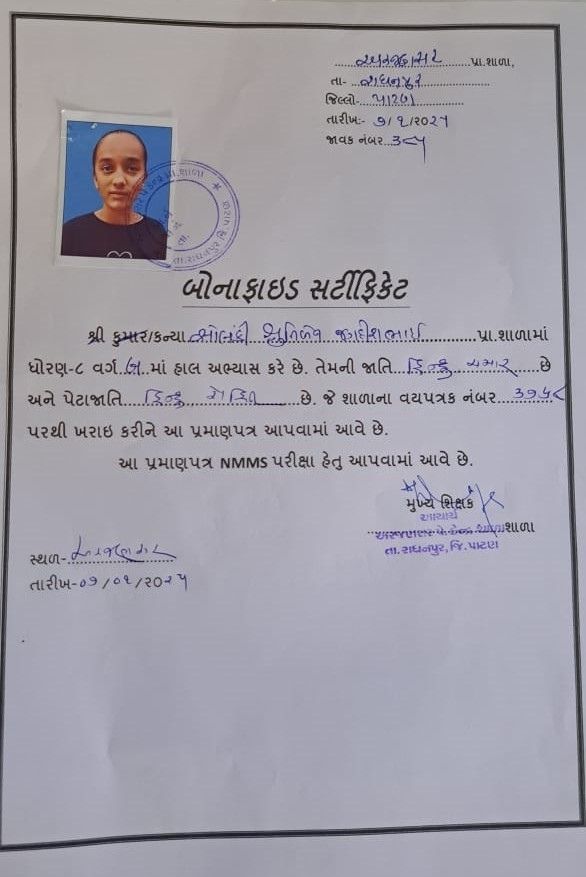 પ્રા.શાળા,
તા- રાધનપુર
જિલ્લો- પાટણ
તારીખ:- ૭/૧/૨૦૨૫
જાવક નંબર...૩૮૫
પ્રા.શાળા
તા.રાધનપુર જિ.પાટણ
બોનાફાઇડ સર્ટીફિકેટ
શ્રી કુમાર/કન્યા સોલંકી જગદીશભાઈ પ્રા.શાળામાં
ધોરણ-૮ વર્ગ બ માં હાલ અભ્યાસ કરે છે. તેમની જાતિ હિન્દુ ચમાર છે
અને પેટાજાતિ હિન્દુ છે. જે શાળાના વયપત્રક નંબર
પરથી ખરાઇ કરીને આ પ્રમાણપત્ર આપવામાં આવે છે.
આ પ્રમાણપત્ર NMMS પરીક્ષા હેતુ આપવામાં આવે છે.
મુખ્ય શિક્ષક
આચાર્ય
શાળા
તા.રાધનપુર, જિ.પાટણ
સ્થળ-
તારીખ-૦૭/૦૧/૨૦૨૫